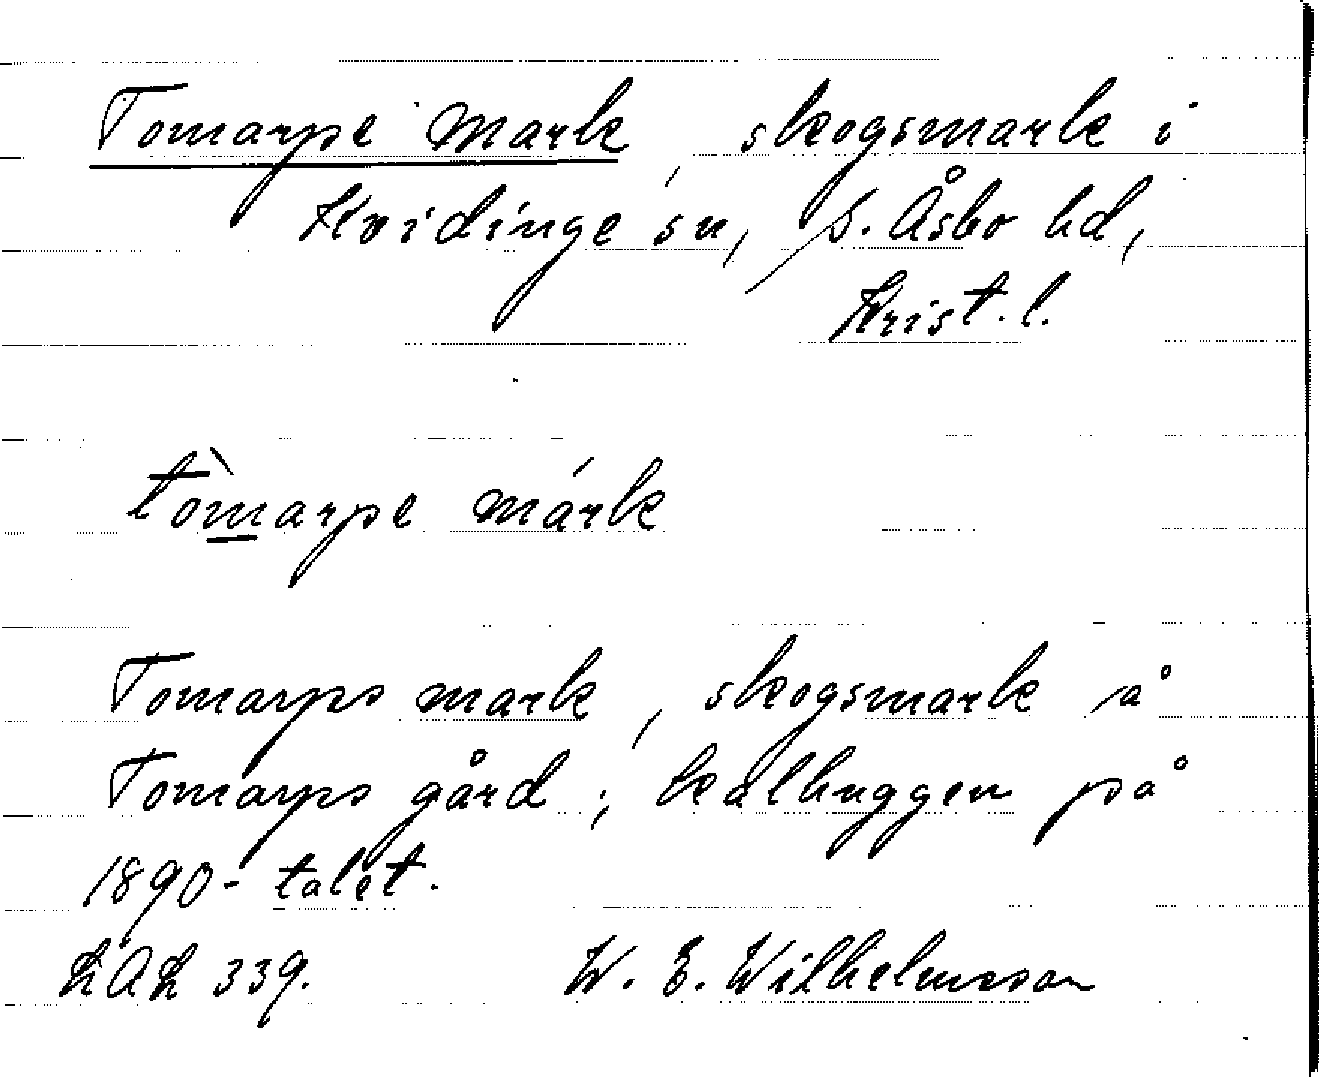 Tomarpe mark, skogsmark i
Kvidinge sn, S. Åsbo hd,
Krist. l.
tòmarpe márk
Tomarps mark, skogsmark å
Tomarps gård; kalhuggen på
1890-talet.
LAL 339. W. E. Wilhelmsson